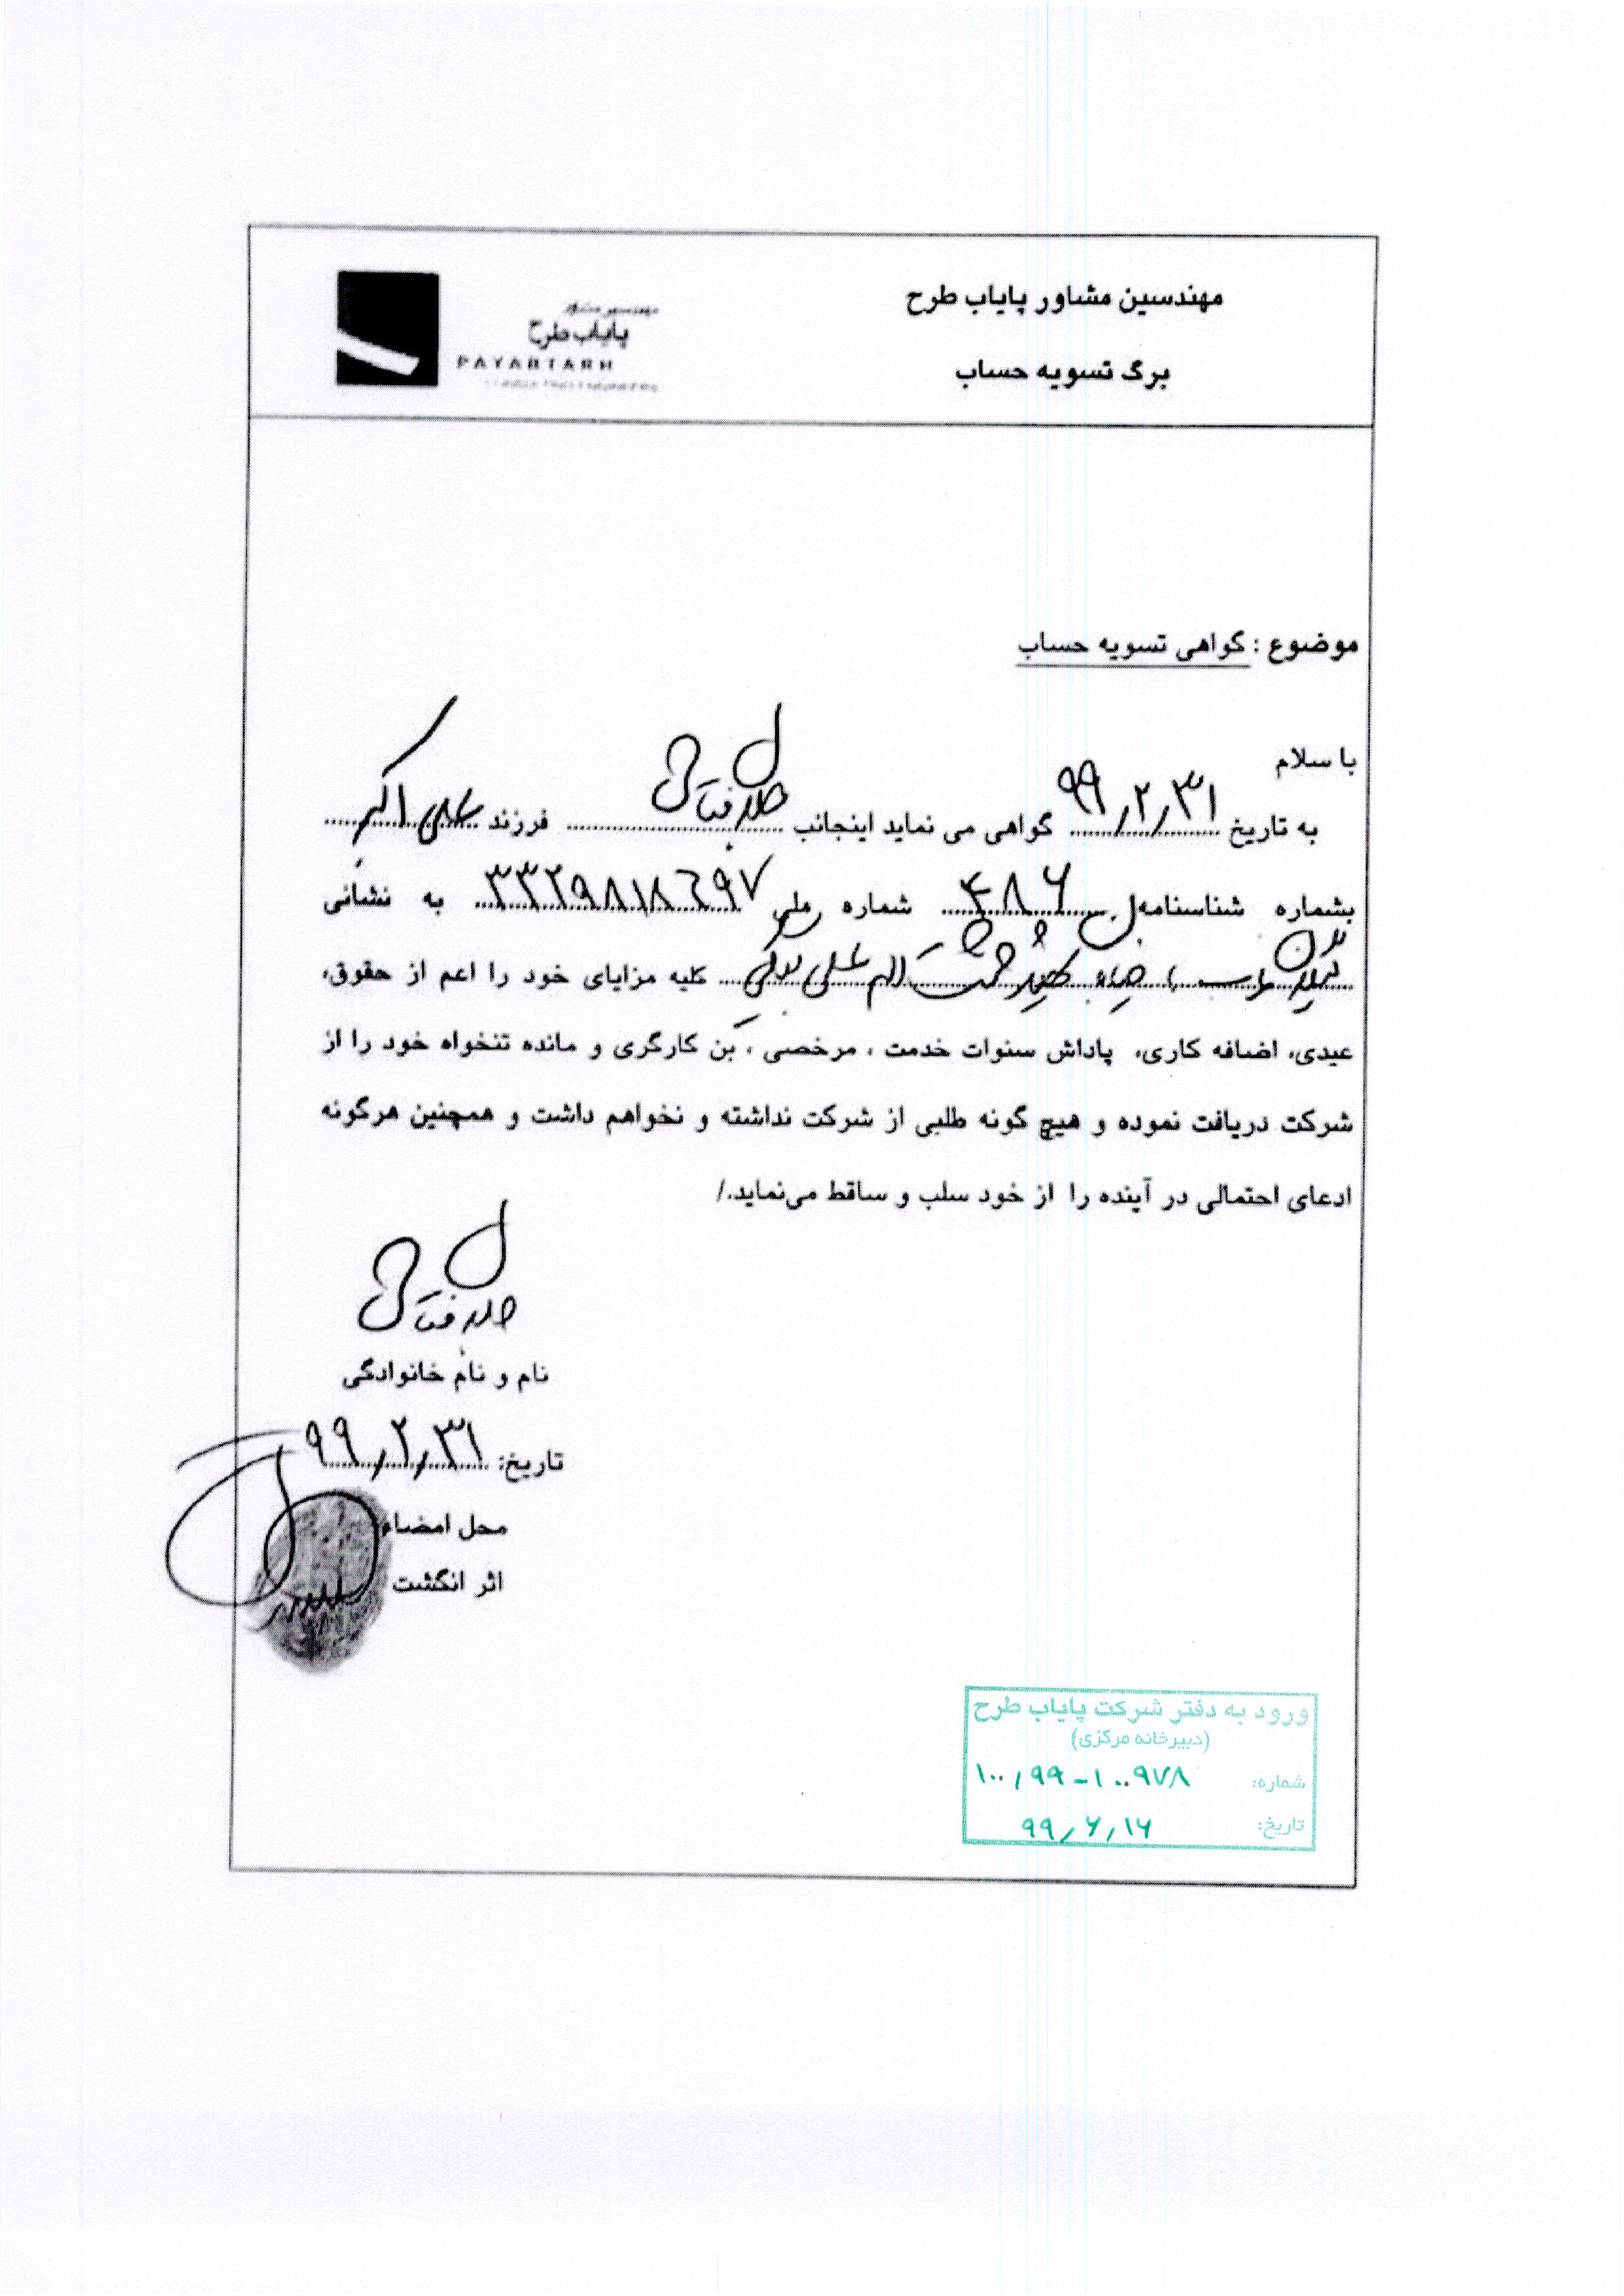 مهندسین مشاور پایاب طرح
برگ تسویه حساب
مهندسین مشاور
پایاب طرح
PAYABTARH
موضوع : گواهی تسویه حساب
با سلام
به تاریخ ۹۹/۲/۳۱ گواهی می نماید اینجانب فرزند علی اکبر
بشماره شناسنامه ۴۸۶ شماره ملی به نشانی
کلیه مزایای خود را اعم از حقوق،
عیدی، اضافه کاری، پاداش سنوات خدمت ، مرخصی ، بن کارگری و مانده تنخواه خود را از
شرکت دریافت نموده و هیچ گونه طلبی از شرکت نداشته و نخواهم داشت و همچنین هرگونه
ادعای احتمالی در آینده را از خود سلب و ساقط می‌نماید./
نام و نام خانوادگی
تاریخ: ۹۹/۲/۳۱
محل امضاء
اثر انگشت
ورود به دفتر شرکت پایاب طرح
(دبیرخانه مرکزی)
شماره: ۱۰۰/۹۹-۱۰۰۹۷۸
تاریخ: ۹۹/۶/۱۶